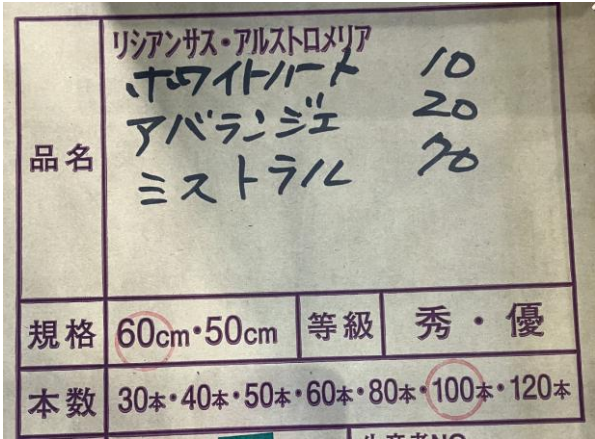 リシアンサス・アルストロメリア
ホワイトハート 10
アバランジェ 20
ミストラル 70
品名
規格 60cm・50cm 等級 秀・優
本数 30本・40本・50本・60本・80本・100本・120本
生産者NO